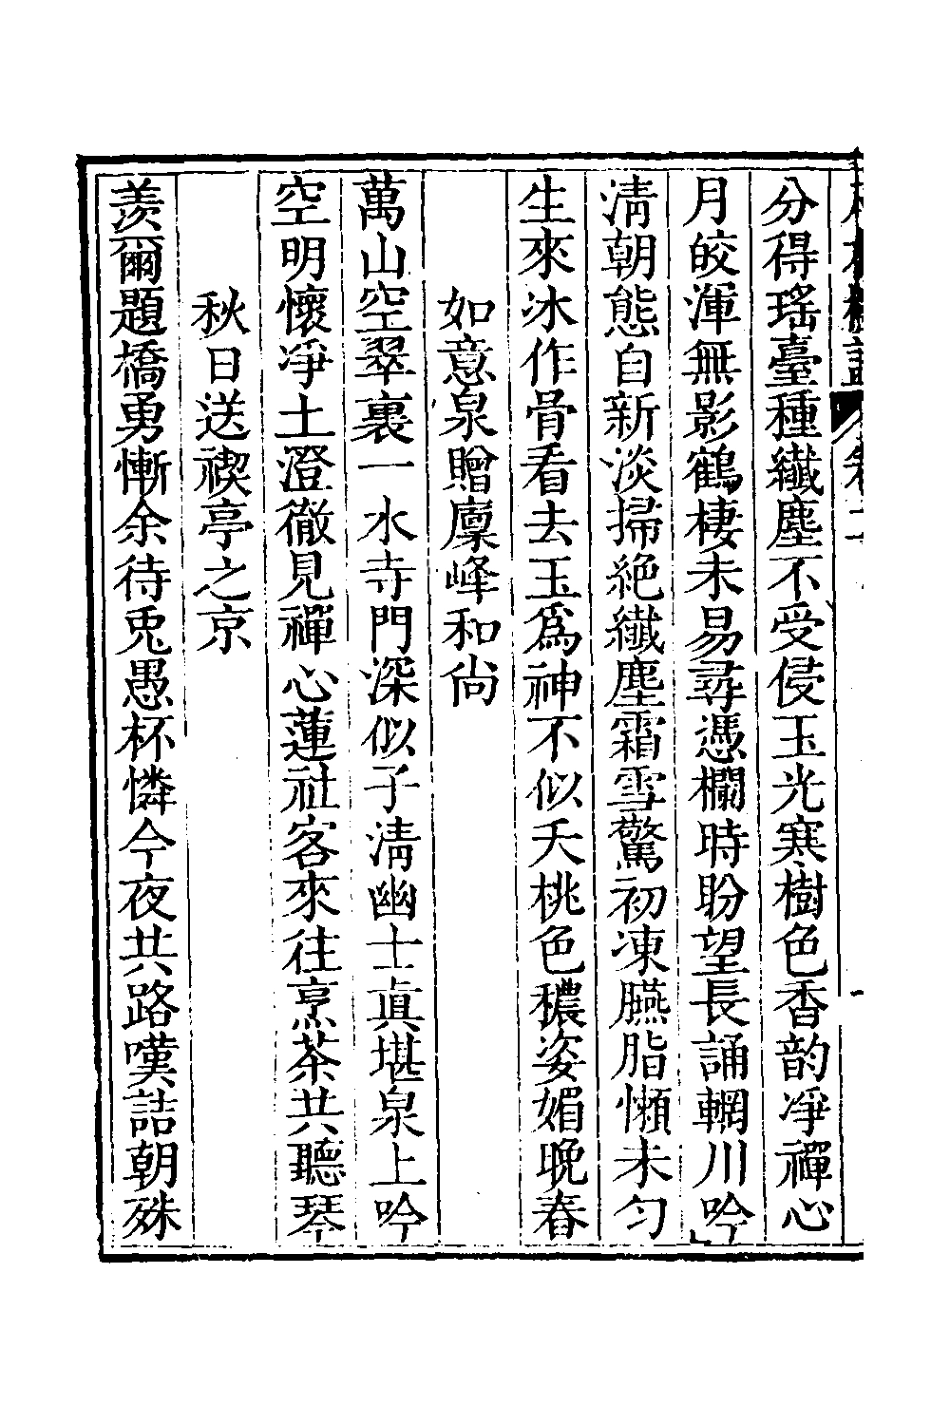 分得瑤臺種纎塵不受侵玉光寒樹色香韵凈禪心
月皎渾無影鶴棲未易尋憑欄時盼望長誦輞川吟
淸朝態自新淡掃絕纎塵霜雪驚初凍臙脂懶未匀
生來冰作骨看去玉爲神不似夭桃色穠姿媚晚春
如意泉贈廩峰和尙
萬山空翠裏一水寺門深似子淸幽士眞堪泉上吟
空明懷凈土澄徹見禪心蓮社客來往烹茶共聽琴
秋日送禊亭之京
羨爾題橋勇慚余待兎愚杯憐今夜共路嘆詰朝殊